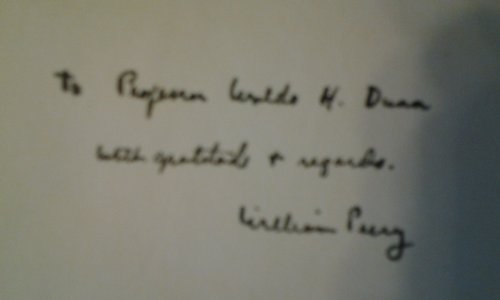 To Professor Waldo H. Dunn
with gratitude + regards.
William Perry